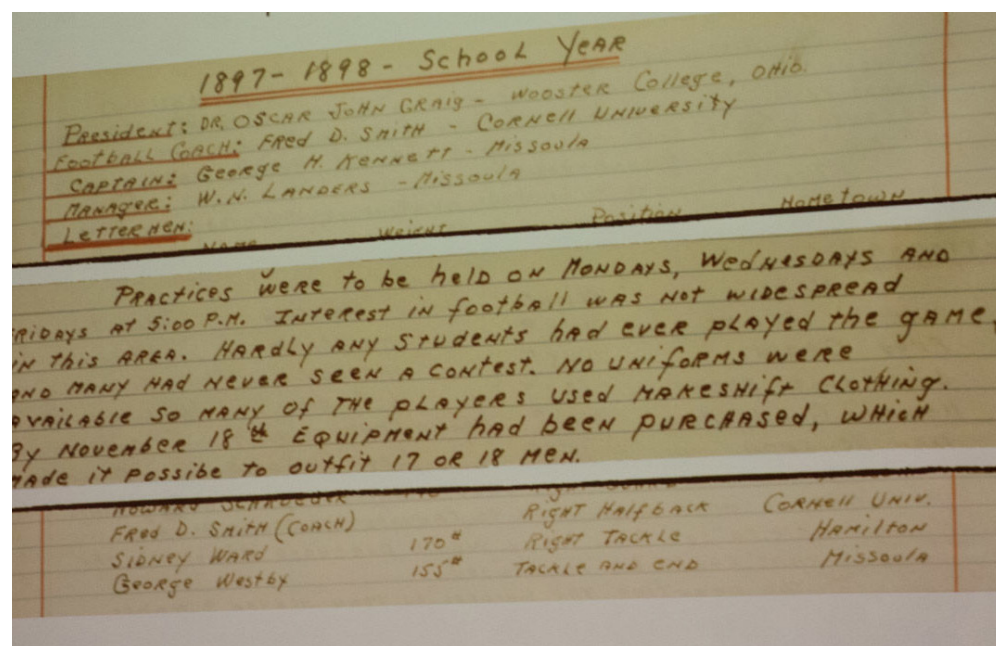 1897-1898 - School Year
President: Dr. Oscar John Craig - Wooster College, Ohio.
Football Coach: Fred D. Smith - Cornell University
Captain: George H. Kennett - Missoula
Manager: W.N. Landers - Missoula
Lettermen:
Name Weight Position Hometown
Practices were to be held on Mondays, Wednesdays and
ridays at 5:00 P.M. Interest in football was not widespread
in this area. Hardly any students had ever played the game,
and many had never seen a contest. No uniforms were
available so many of the players used makeshift clothing.
By November 18th equipment had been purchased, which
made it possibe to outfit 17 or 18 men.
Howard Schroeder Right Guard
Fred D. Smith (Coach) Right Halfback Cornell Univ.
Sidney Ward 170# Right Tackle Hamilton
George Westby 155# Tackle and End Missoula